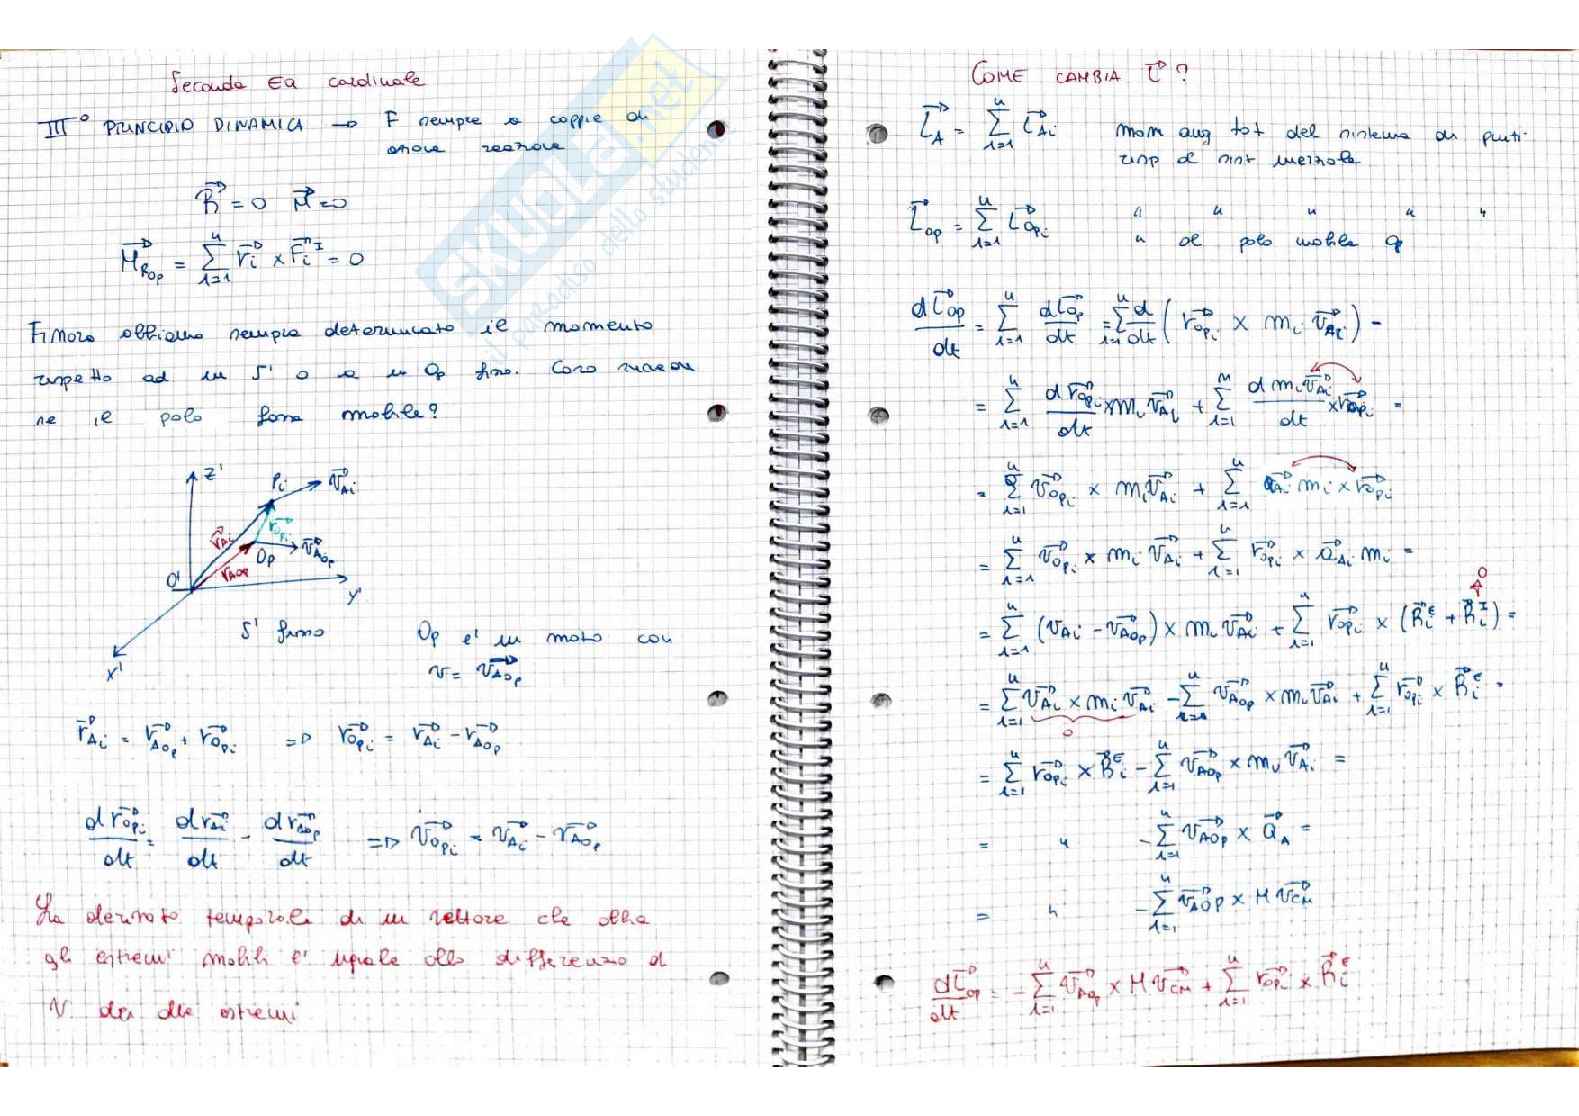 Seconda Eq cardinale
III° PRINCIPIO DINAMICA → F sempre a coppie di
azione reazione
R⃗ = 0 M⃗ = 0
M⃗_{R_{Op}} = ∑_{i=1}^{n} r⃗_i × F⃗_i^I = 0
Finora abbiamo sempre determinato il momento
rispetto ad un S' o a un Op fisso. Cosa succede
se il polo fosse mobile?
z'
P_i
v⃗_{A_i}
r⃗_{A_i}
r⃗_{Op_i}
Op
v⃗_{A_{Op}}
r_{AOp}
O'
y'
x'
S' fisso
Op e' in moto con
v = v⃗_{A_{Op}}
r⃗_{A_i} = r⃗_{A_{Op}} + r⃗_{Op_i} => r⃗_{Op_i} = r⃗_{A_i} - r⃗_{A_{Op}}
d r⃗_{Op_i}/dt = d r⃗_{A_i}/dt - d r⃗_{A_{Op}}/dt => v⃗_{Op_i} = v⃗_{A_i} - v⃗_{A_{Op}}
La derivata temporale di un vettore che abbia
gli estremi mobili e' uguale alla differenza di
v. dei due estremi
COME CAMBIA L⃗ ?
L⃗_A = ∑_{i=1}^{n} L⃗_{A_i} mom ang tot del sistema di punti
risp al sist inerziale
L⃗_{Op} = ∑_{i=1}^{n} L⃗_{Op_i} " " " " "
" al polo mobile
dL⃗_{Op}/dt = ∑_{i=1}^{n} dL⃗_{Op}/dt = ∑_{i=1}^{n} d/dt ( r⃗_{Op_i} × m_i v⃗_{A_i} ) =
= ∑_{i=1}^{n} d r⃗_{Op_i}/dt × m_i v⃗_{A_i} + ∑_{i=1}^{n} d m_i v⃗_{A_i}/dt × r⃗_{Op_i} =
= ∑_{i=1}^{n} v⃗_{Op_i} × m_i v⃗_{A_i} + ∑_{i=1}^{n} a⃗_{A_i} m_i × r⃗_{Op_i}
= ∑_{i=1}^{n} v⃗_{Op_i} × m_i v⃗_{A_i} + ∑_{i=1}^{n} r⃗_{Op_i} × a⃗_{A_i} m_i =
= ∑_{i=1}^{n} (v_{A_i} - v⃗_{A_{Op}}) × m_i v⃗_{A_i} + ∑_{i=1}^{n} r⃗_{Op_i} × (R⃗_i^E + R⃗_i^I) =
0
= ∑_{i=1}^{n} v⃗_{A_i} × m_i v⃗_{A_i} - ∑_{i=1}^{n} v⃗_{A_{Op}} × m_i v⃗_{A_i} + ∑_{i=1}^{n} r⃗_{Op_i} × R⃗_i^E =
0
= ∑_{i=1}^{n} r⃗_{Op_i} × R⃗_i^E - ∑_{i=1}^{n} v⃗_{A_{Op}} × m_i v⃗_{A_i} =
= " - ∑_{i=1}^{n} v⃗_{A_{Op}} × Q⃗_A =
= " - ∑_{i=1}^{n} v⃗_{A_{Op}} × M v⃗_{CM}
dL⃗_{Op}/dt = - ∑_{i=1}^{n} v⃗_{A_{Op}} × M v⃗_{CM} + ∑_{i=1}^{n} r⃗_{Op_i} × R⃗_i^E